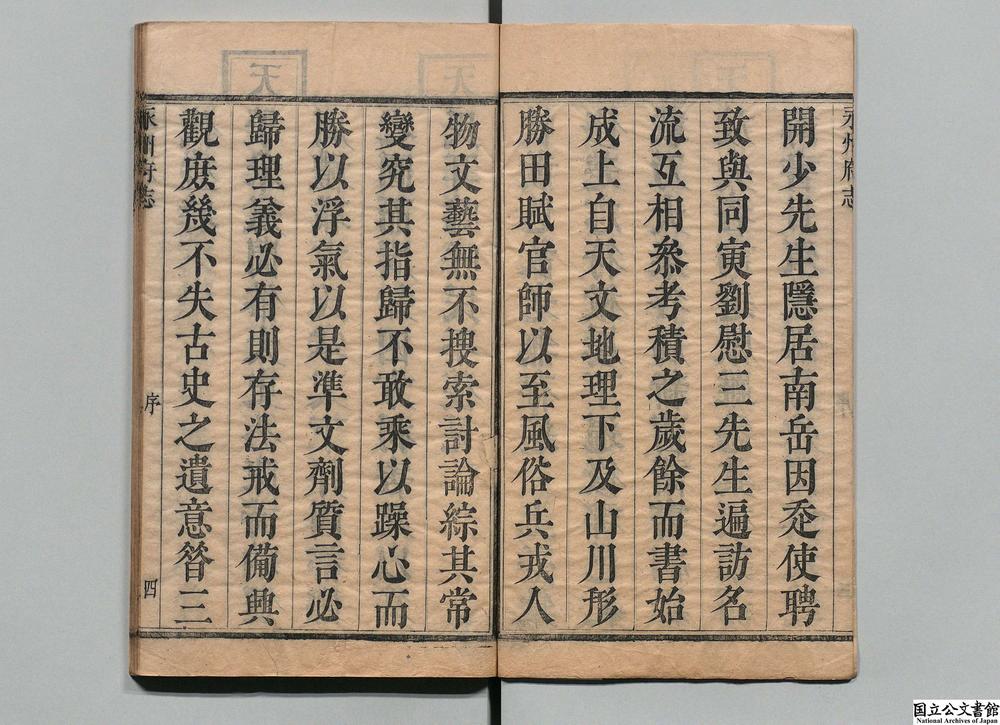 永州府志
開少先生隱居南岳因走使聘
致與同寅劉慰三先生遍訪名
流互相叅考積之歲餘而書始
成上自天文地理下及山川形
勝田賦官師以至風俗兵戎人
物文藝無不搜索討論綜其常
變究其指歸不敢乘以躁心而
勝以浮氣以是準文劑質言必
歸理義必有則存法戒而備興
觀庶幾不失古史之遺意昝三
永州府志
序
四
国立公文書館
National Archives of Japan